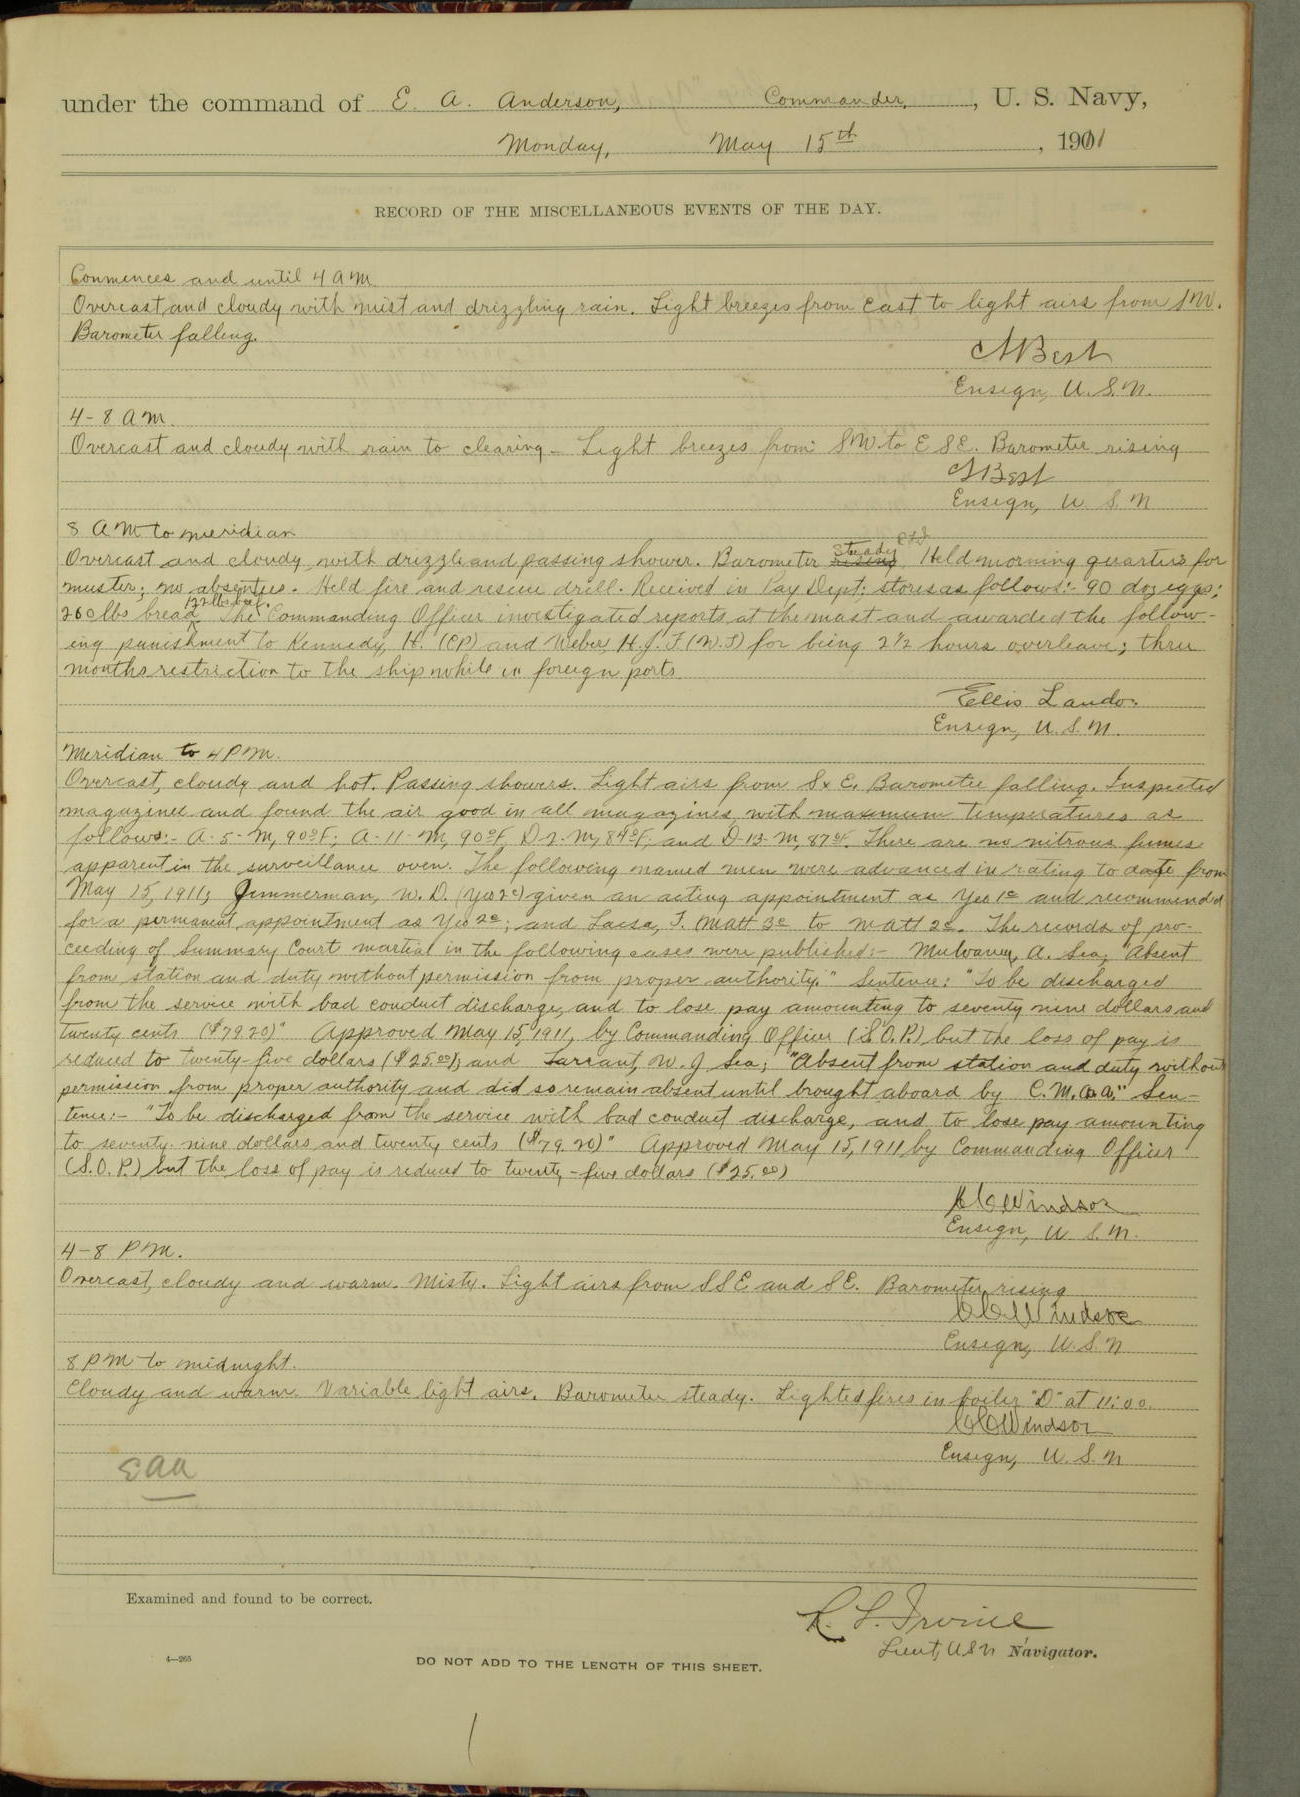 under the command of E. A. Anderson, Commander, , U. S. Navy,
Monday, May 15th , 1911
RECORD OF THE MISCELLANEOUS EVENTS OF THE DAY.
Commences and until 4 A M
Overcast and cloudy with mist and drizzling rain. Light breezes from East to light airs from SW.
Barometer falling.
Best
Ensign, U. S. N.
4-8 A M.
Overcast and cloudy with rain to clearing - Light breezes from SW to ESE. Barometer rising
Best
Ensign, U S N
8 A M to meridian
Overcast and cloudy with drizzle and passing shower. Barometer steady. Held morning quarters for
muster; no absentees. Held fire and rescue drill. Received in Pay Dept: stores as follows:- 90 doz eggs;
260 lbs bread, 122 lbs beef. The Commanding Officer investigated reports at the mast and awarded the follow-
ing punishment to Kennedy, H. (CP) and Weber, H. J. F. (W.T) for being 2 1/2 hours overleave; three
months restriction to the ship while in foreign ports.
Ellis Lando.
Ensign, U. S. N.
Meridian to 4 P M.
Overcast, cloudy and hot. Passing showers. Light airs from S x E. Barometer falling. Inspected
magazines and found the air good in all magazines, with maximum temperatures as
follows:- A-5-M, 90°F; A-11-M, 90°F, D-2-M, 84°F; and D-13-M, 87°F. There are no nitrous fumes
apparent in the surveillance oven. The following named men were advanced in rating to date from
May 15, 1911; Zimmerman, W. D. (Yeo 2c) given an acting appointment as Yeo 1c and recommend'd
for a permanent appointment as Yeo 2c; and Lacsa, F. Matt 3c to Matt 2c. The records of pro-
ceeding of Summary Court martial in the following cases were published:- Mulvaney, A. Sea; "Absent
from station and duty without permission from proper authority." Sentence: "To be discharged
from the service with bad conduct discharge, and to lose pay amounting to seventy nine dollars and
twenty cents ($79.20)" Approved May 15, 1911, by Commanding Officer (S.O.P.) but the loss of pay is
reduced to twenty-five dollars ($25.00); and Tarrant, W. J Sea; "Absent from station and duty without
permission from proper authority and did so remain absent until brought aboard by C.M.a.a." Sen-
tence:- "To be discharged from the service with bad conduct discharge, and to lose pay amounting
to seventy-nine dollars and twenty cents ($79.20)" Approved May 15, 1911 by Commanding Officer
(S.O.P.) but the loss of pay is reduced to twenty-five dollars ($25.00)
CC Windsor
Ensign, U S. N.
4-8 P M.
Overcast, cloudy and warm. Misty. Light airs from SSE and SE. Barometer rising
CC Windsor
Ensign, U. S. N
8 P M to midnight.
Cloudy and warm. Variable light airs. Barometer steady. Lighted fires in boiler "D" at 11:00.
CC Windsor
Ensign, U. S. N
EAA
Examined and found to be correct.
R. L. Irvine
Lieut, USN Navigator.
4—265
DO NOT ADD TO THE LENGTH OF THIS SHEET.